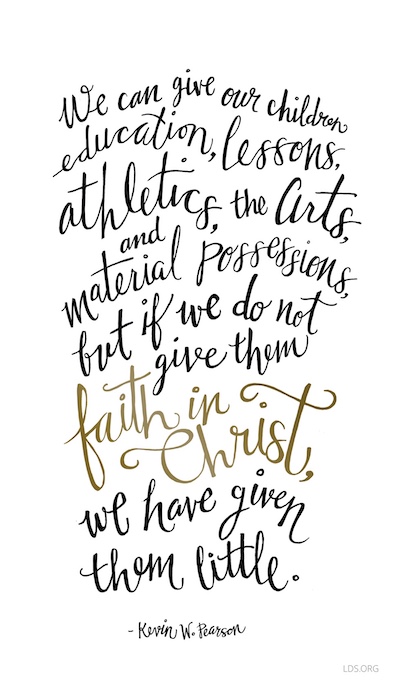 We can give our children
education, lessons,
athletics, the arts,
and
material possessions,
but if we do not
give them
faith in
Christ,
we have given
them little.
- Kevin W. Pearson
LDS.ORG